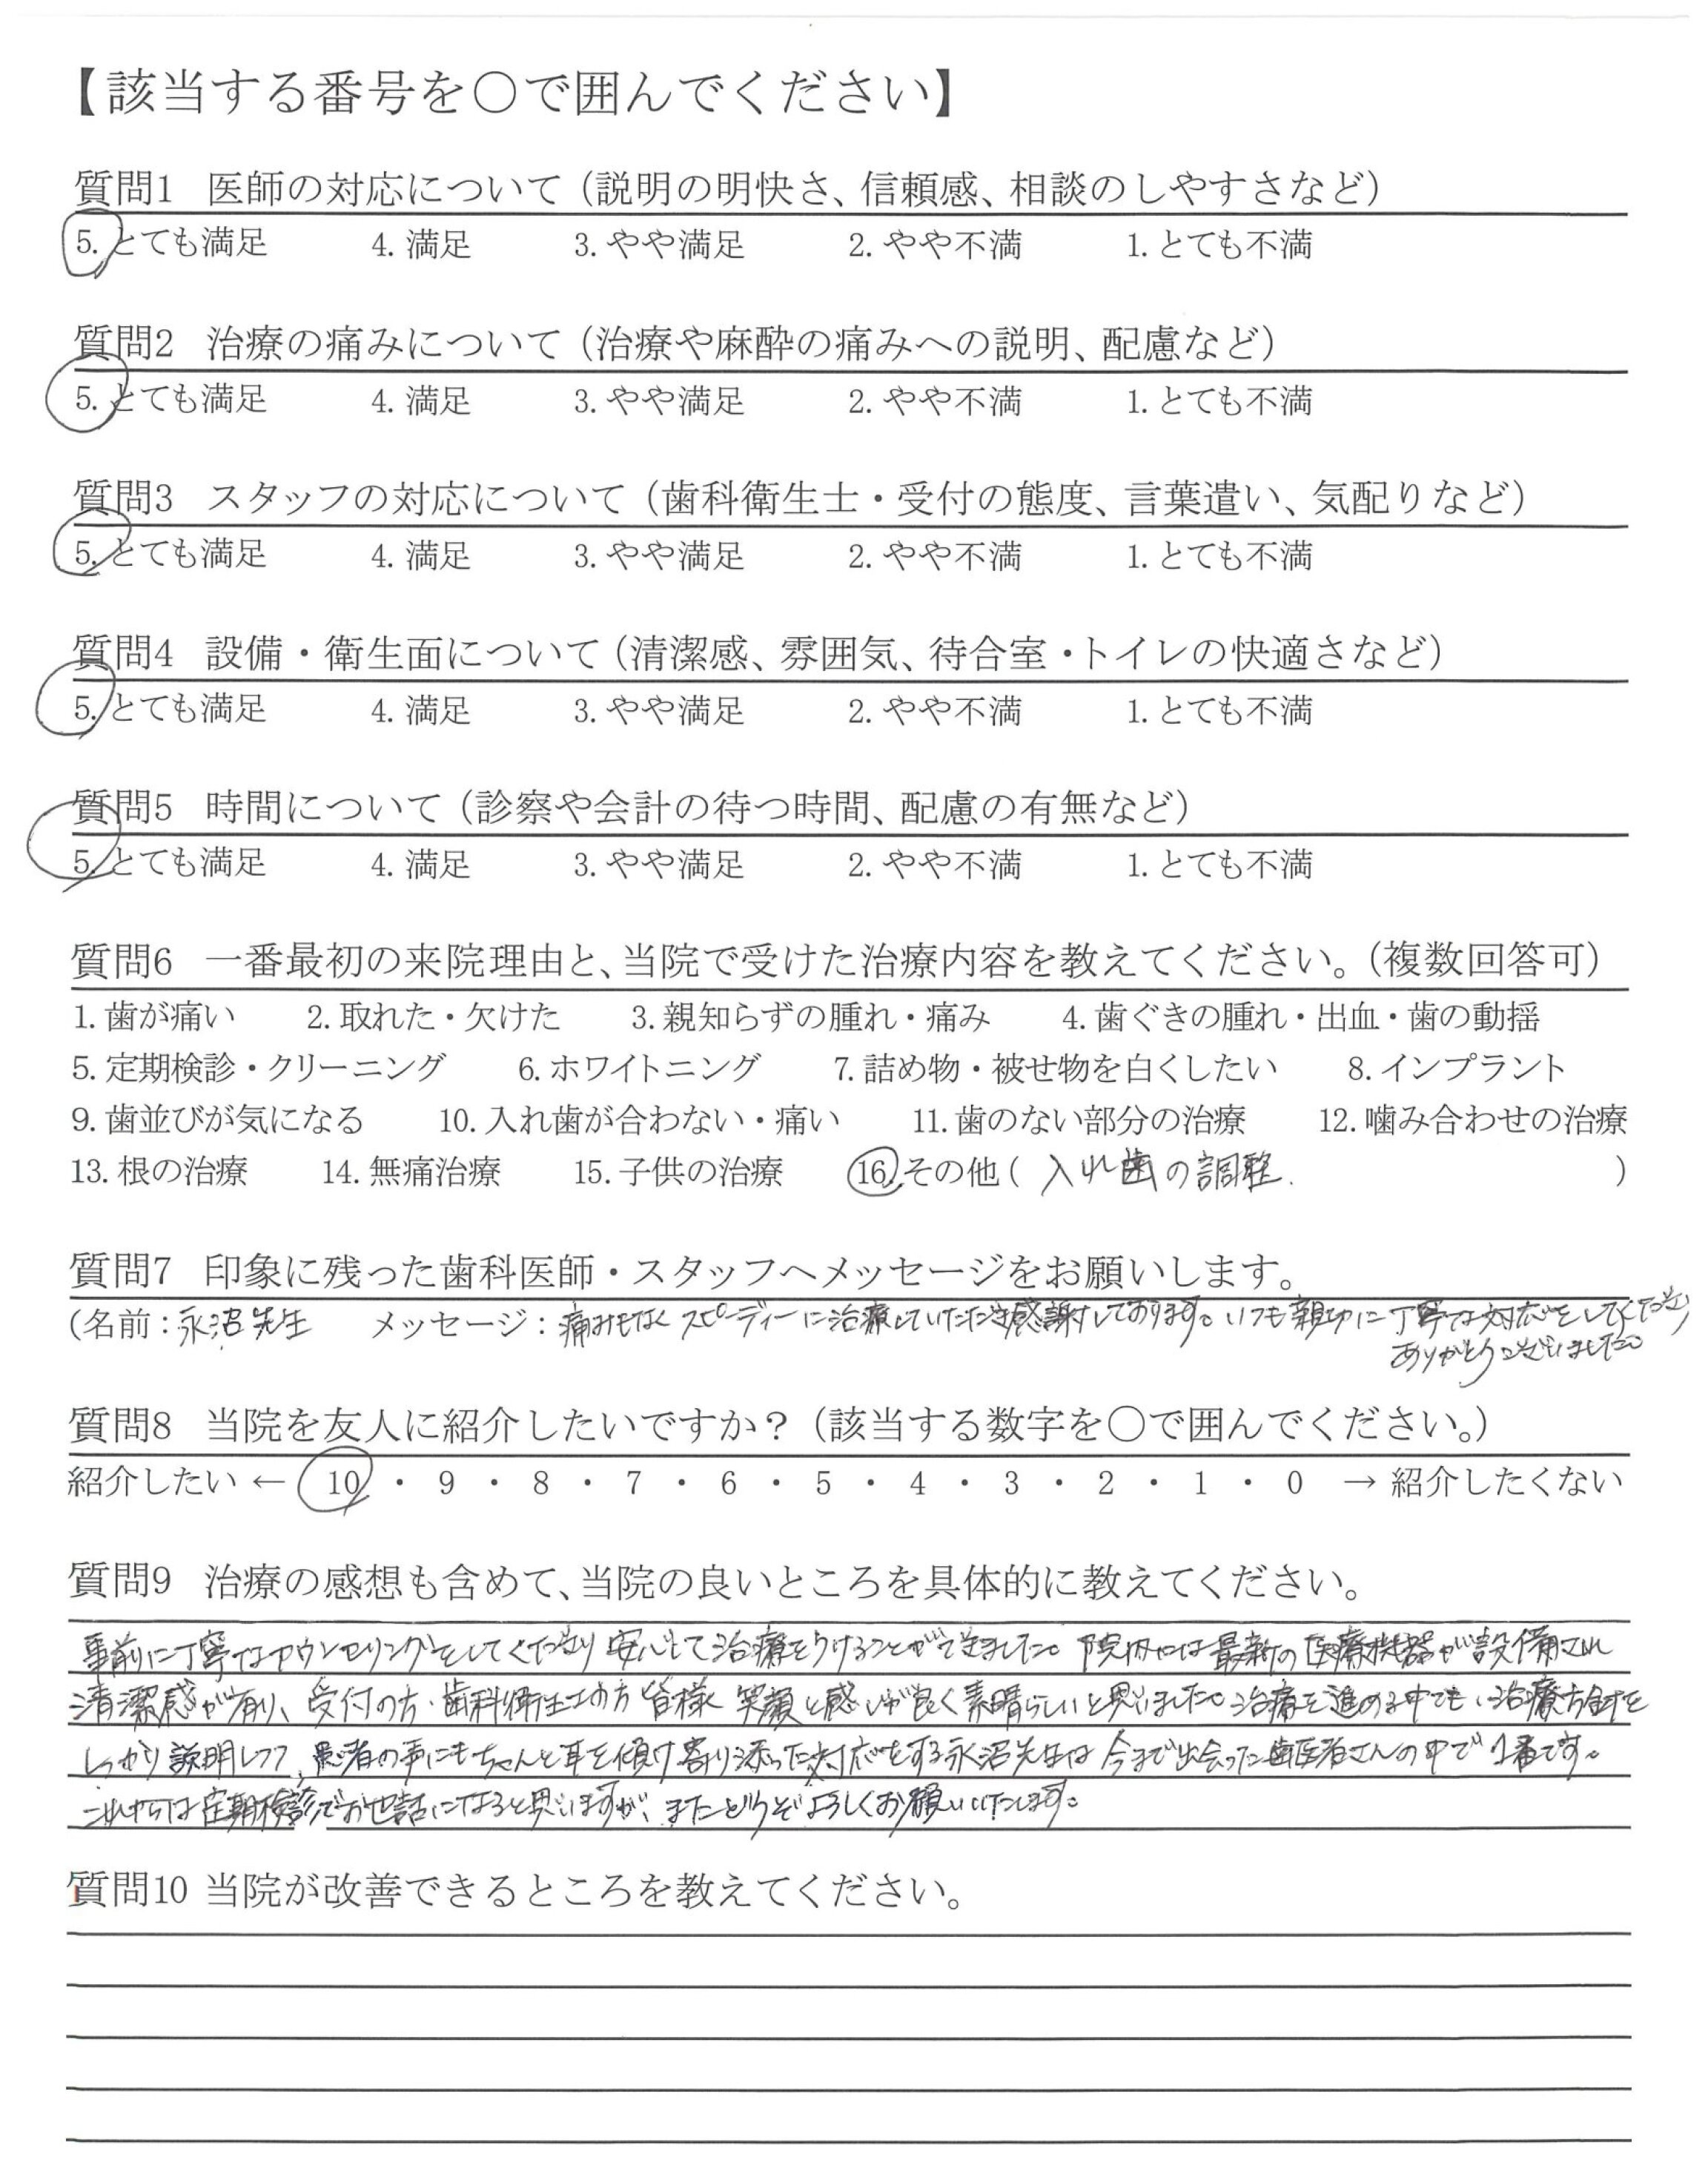 【該当する番号を〇で囲んでください】
質問1 医師の対応について（説明の明快さ、信頼感、相談のしやすさなど）
5. とても満足 4. 満足 3. やや満足 2. やや不満 1. とても不満
質問2 治療の痛みについて（治療や麻酔の痛みへの説明、配慮など）
5. とても満足 4. 満足 3. やや満足 2. やや不満 1. とても不満
質問3 スタッフの対応について（歯科衛生士・受付の態度、言葉遣い、気配りなど）
5. とても満足 4. 満足 3. やや満足 2. やや不満 1. とても不満
質問4 設備・衛生面について（清潔感、雰囲気、待合室・トイレの快適さなど）
5. とても満足 4. 満足 3. やや満足 2. やや不満 1. とても不満
質問5 時間について（診察や会計の待つ時間、配慮の有無など）
5. とても満足 4. 満足 3. やや満足 2. やや不満 1. とても不満
質問6 一番最初の来院理由と、当院で受けた治療内容を教えてください。（複数回答可）
1. 歯が痛い 2. 取れた・欠けた 3. 親知らずの腫れ・痛み 4. 歯ぐきの腫れ・出血・歯の動揺
5. 定期検診・クリーニング 6. ホワイトニング 7. 詰め物・被せ物を白くしたい 8. インプラント
9. 歯並びが気になる 10. 入れ歯が合わない・痛い 11. 歯のない部分の治療 12. 噛み合わせの治療
13. 根の治療 14. 無痛治療 15. 子供の治療 16. その他（ 入れ歯の調整. ）
質問7 印象に残った歯科医師・スタッフへメッセージをお願いします。
（名前：永沼先生 メッセージ：痛みもなくスピーディーに治療していただき感謝しております。いつも親切に丁寧な対応をしてくださり
ありがとうございました。
質問8 当院を友人に紹介したいですか？（該当する数字を〇で囲んでください。）
紹介したい ← 10 ・ 9 ・ 8 ・ 7 ・ 6 ・ 5 ・ 4 ・ 3 ・ 2 ・ 1 ・ 0 → 紹介したくない
質問9 治療の感想も含めて、当院の良いところを具体的に教えてください。
事前に丁寧なカウンセリングをしてくださり安心して治療をうけることができました。院内には最新の医療機器が設備され
清潔感が有り、受付の方・歯科衛生士の方皆様笑顔と感じが良く素晴らしいと思いました。治療を進める中でも、治療方針を
しっかり説明しつつ、患者の声にもちゃんと耳を傾け寄り添った対応をする永沼先生は今まで出会った歯医者さんの中で1番です。
これからは定期検診でお世話になると思いますが、またどうぞよろしくお願いいたします。
質問10 当院が改善できるところを教えてください。